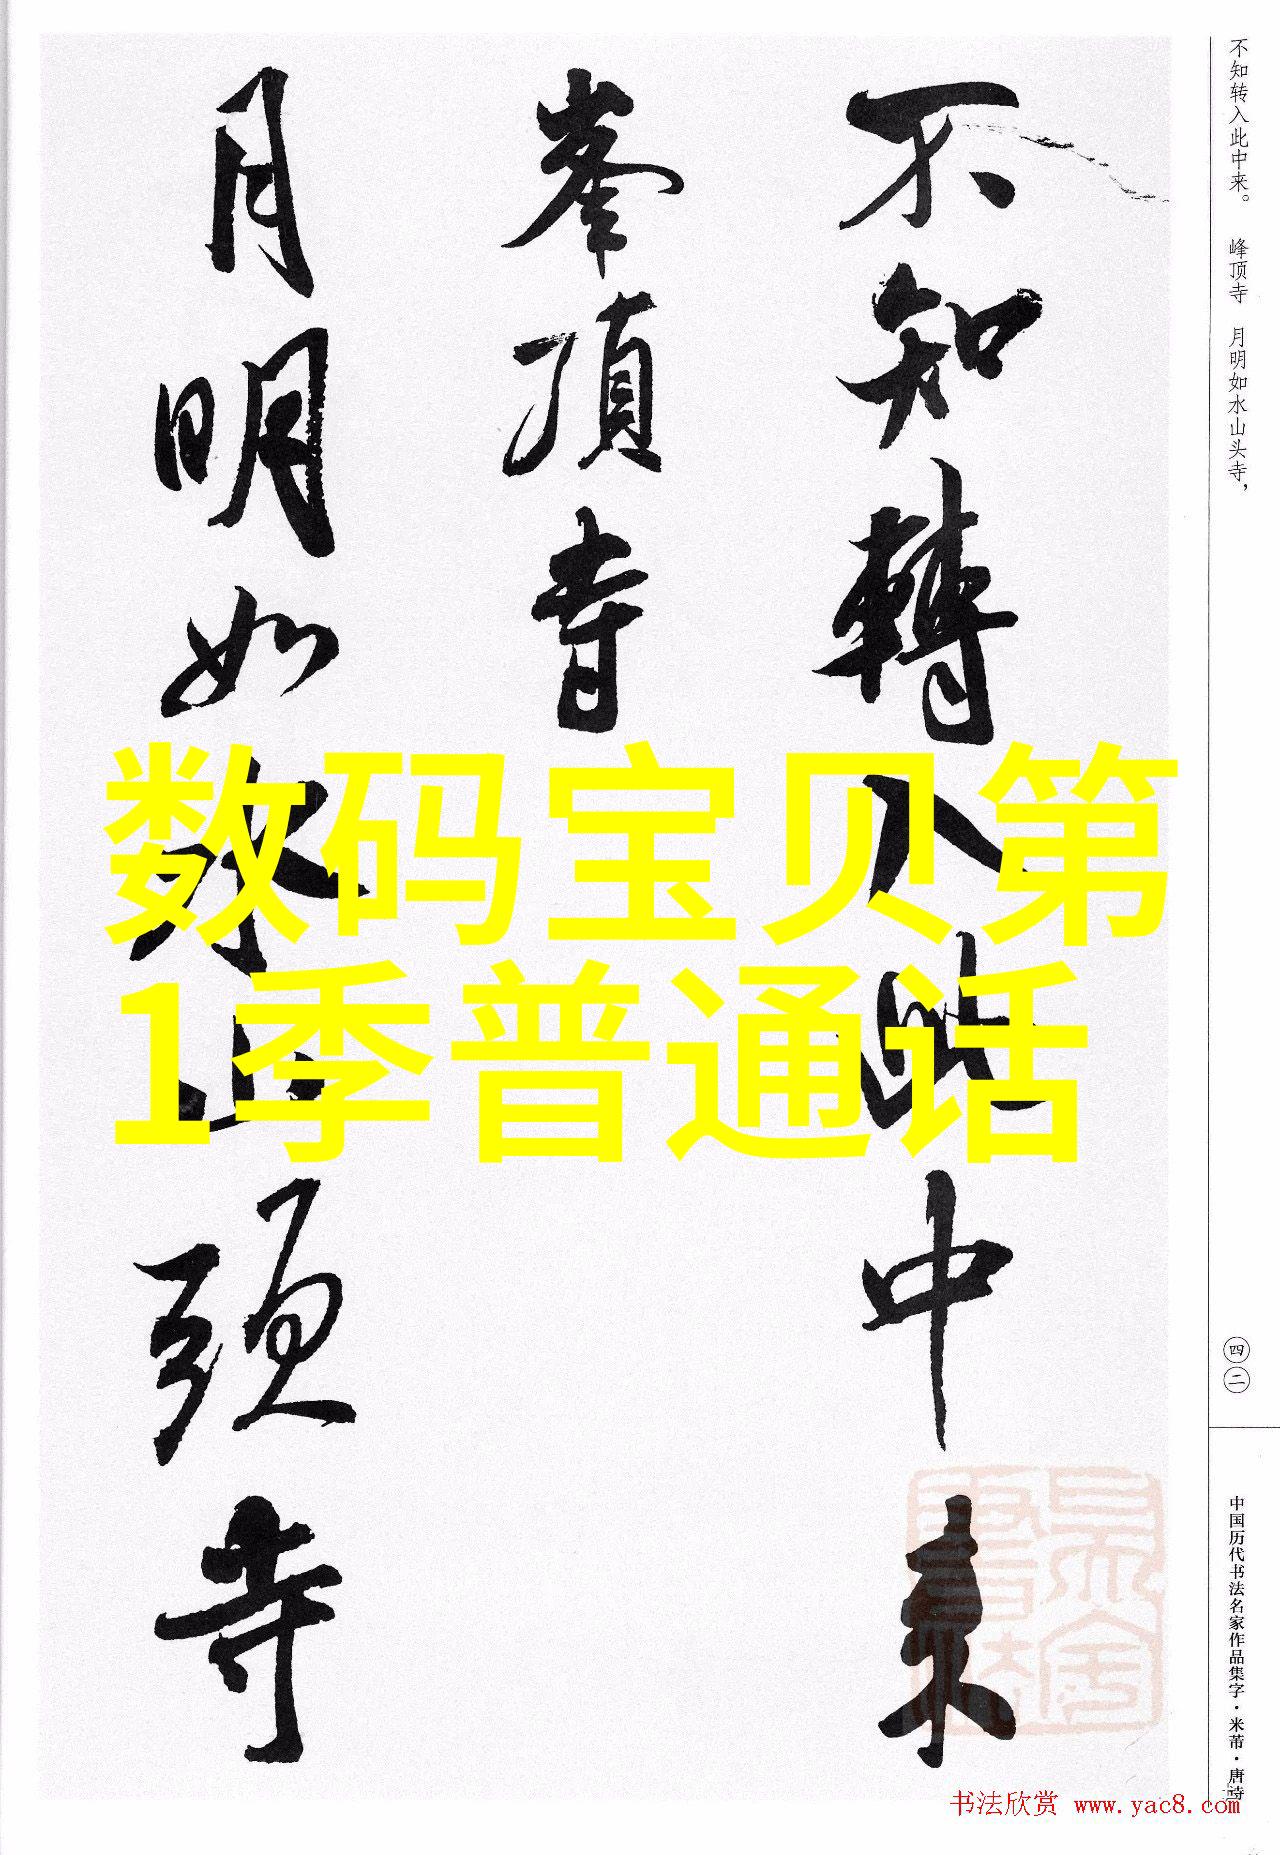 不知轉入此中来
峯頂寺
月明如水山頭寺
数码宝贝第
1季普通话
不知转入此中来。 峰顶寺 月明如水山头寺，
四二
中国历代书法名家作品集字·米芾·唐诗
书法欣赏 www.yac8.com